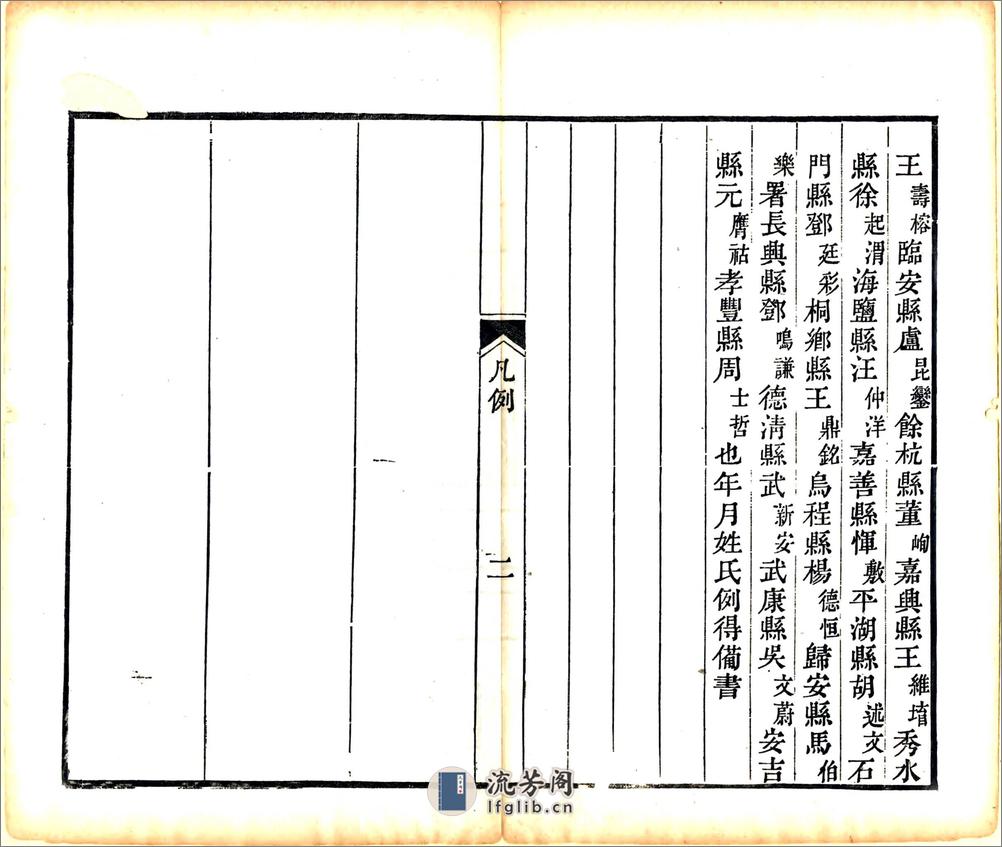 王壽榕臨安縣盧昆鑾餘杭縣董峋嘉興縣王維堉秀水
縣徐起渭海鹽縣汪仲洋嘉善縣惲敷平湖縣胡述文石
門縣鄧廷彩桐鄉縣王鼎銘烏程縣楊德恒歸安縣馬伯
樂署長興縣鄧鳴謙德淸縣武新安武康縣吳文蔚安吉
縣元膺祜孝豐縣周士哲也年月姓氏例得備書
凡例
二
流芳阁
lfglib.cn